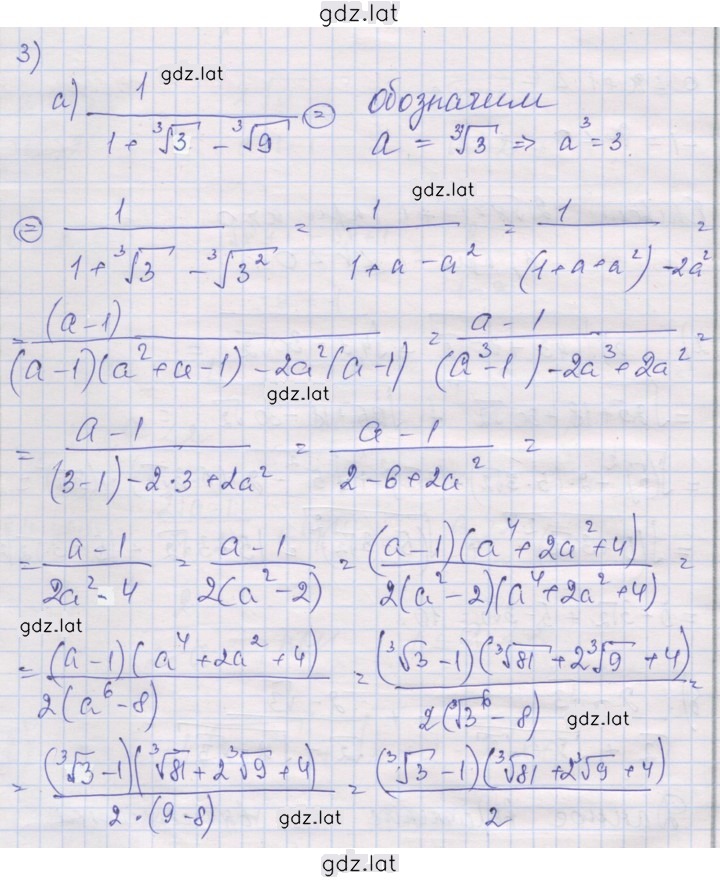 gdz.lat
3)
gdz.lat
а) 1/(1 + ∛3 - ∛9) ⊜ обозначим
a = ∛3 => a³ = 3.
gdz.lat
⊜ 1/(1 + ∛3 - ∛3²) = 1/(1 + a - a²) = 1/((1 + a + a²) - 2a²) =
= (a - 1)/((a - 1)(a² + a - 1) - 2a²(a - 1)) = (a - 1)/((a³ - 1) - 2a³ + 2a²) =
gdz.lat
= (a - 1)/((3 - 1) - 2·3 + 2a²) = (a - 1)/(2 - 6 + 2a²) =
= (a - 1)/(2a² - 4) = (a - 1)/(2(a² - 2)) = (a - 1)(a⁴ + 2a² + 4)/(2(a² - 2)(a⁴ + 2a² + 4)) =
gdz.lat
= (a - 1)(a⁴ + 2a² + 4)/(2(a⁶ - 8)) = (∛3 - 1)(∛81 + 2∛9 + 4)/(2(∛3⁶ - 8)) =
gdz.lat
= (∛3 - 1)(∛81 + 2∛9 + 4)/(2·(9 - 8)) = (∛3 - 1)(∛81 + 2∛9 + 4)/2
gdz.lat
gdz.lat